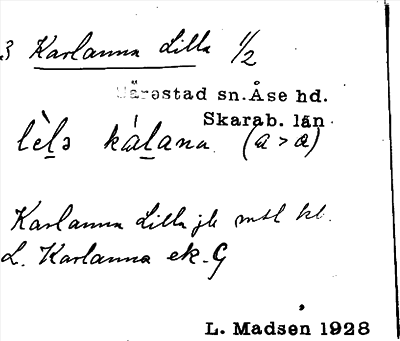 3 Karlanna Lilla 1/2
Särestad sn. Åse hd.
Skarab. län
lèl̲ə kál̲ana (a > æ)
Karlanna Lilla jb mtl kl.
L. Karlanna ek. G
L. Madsen 1928